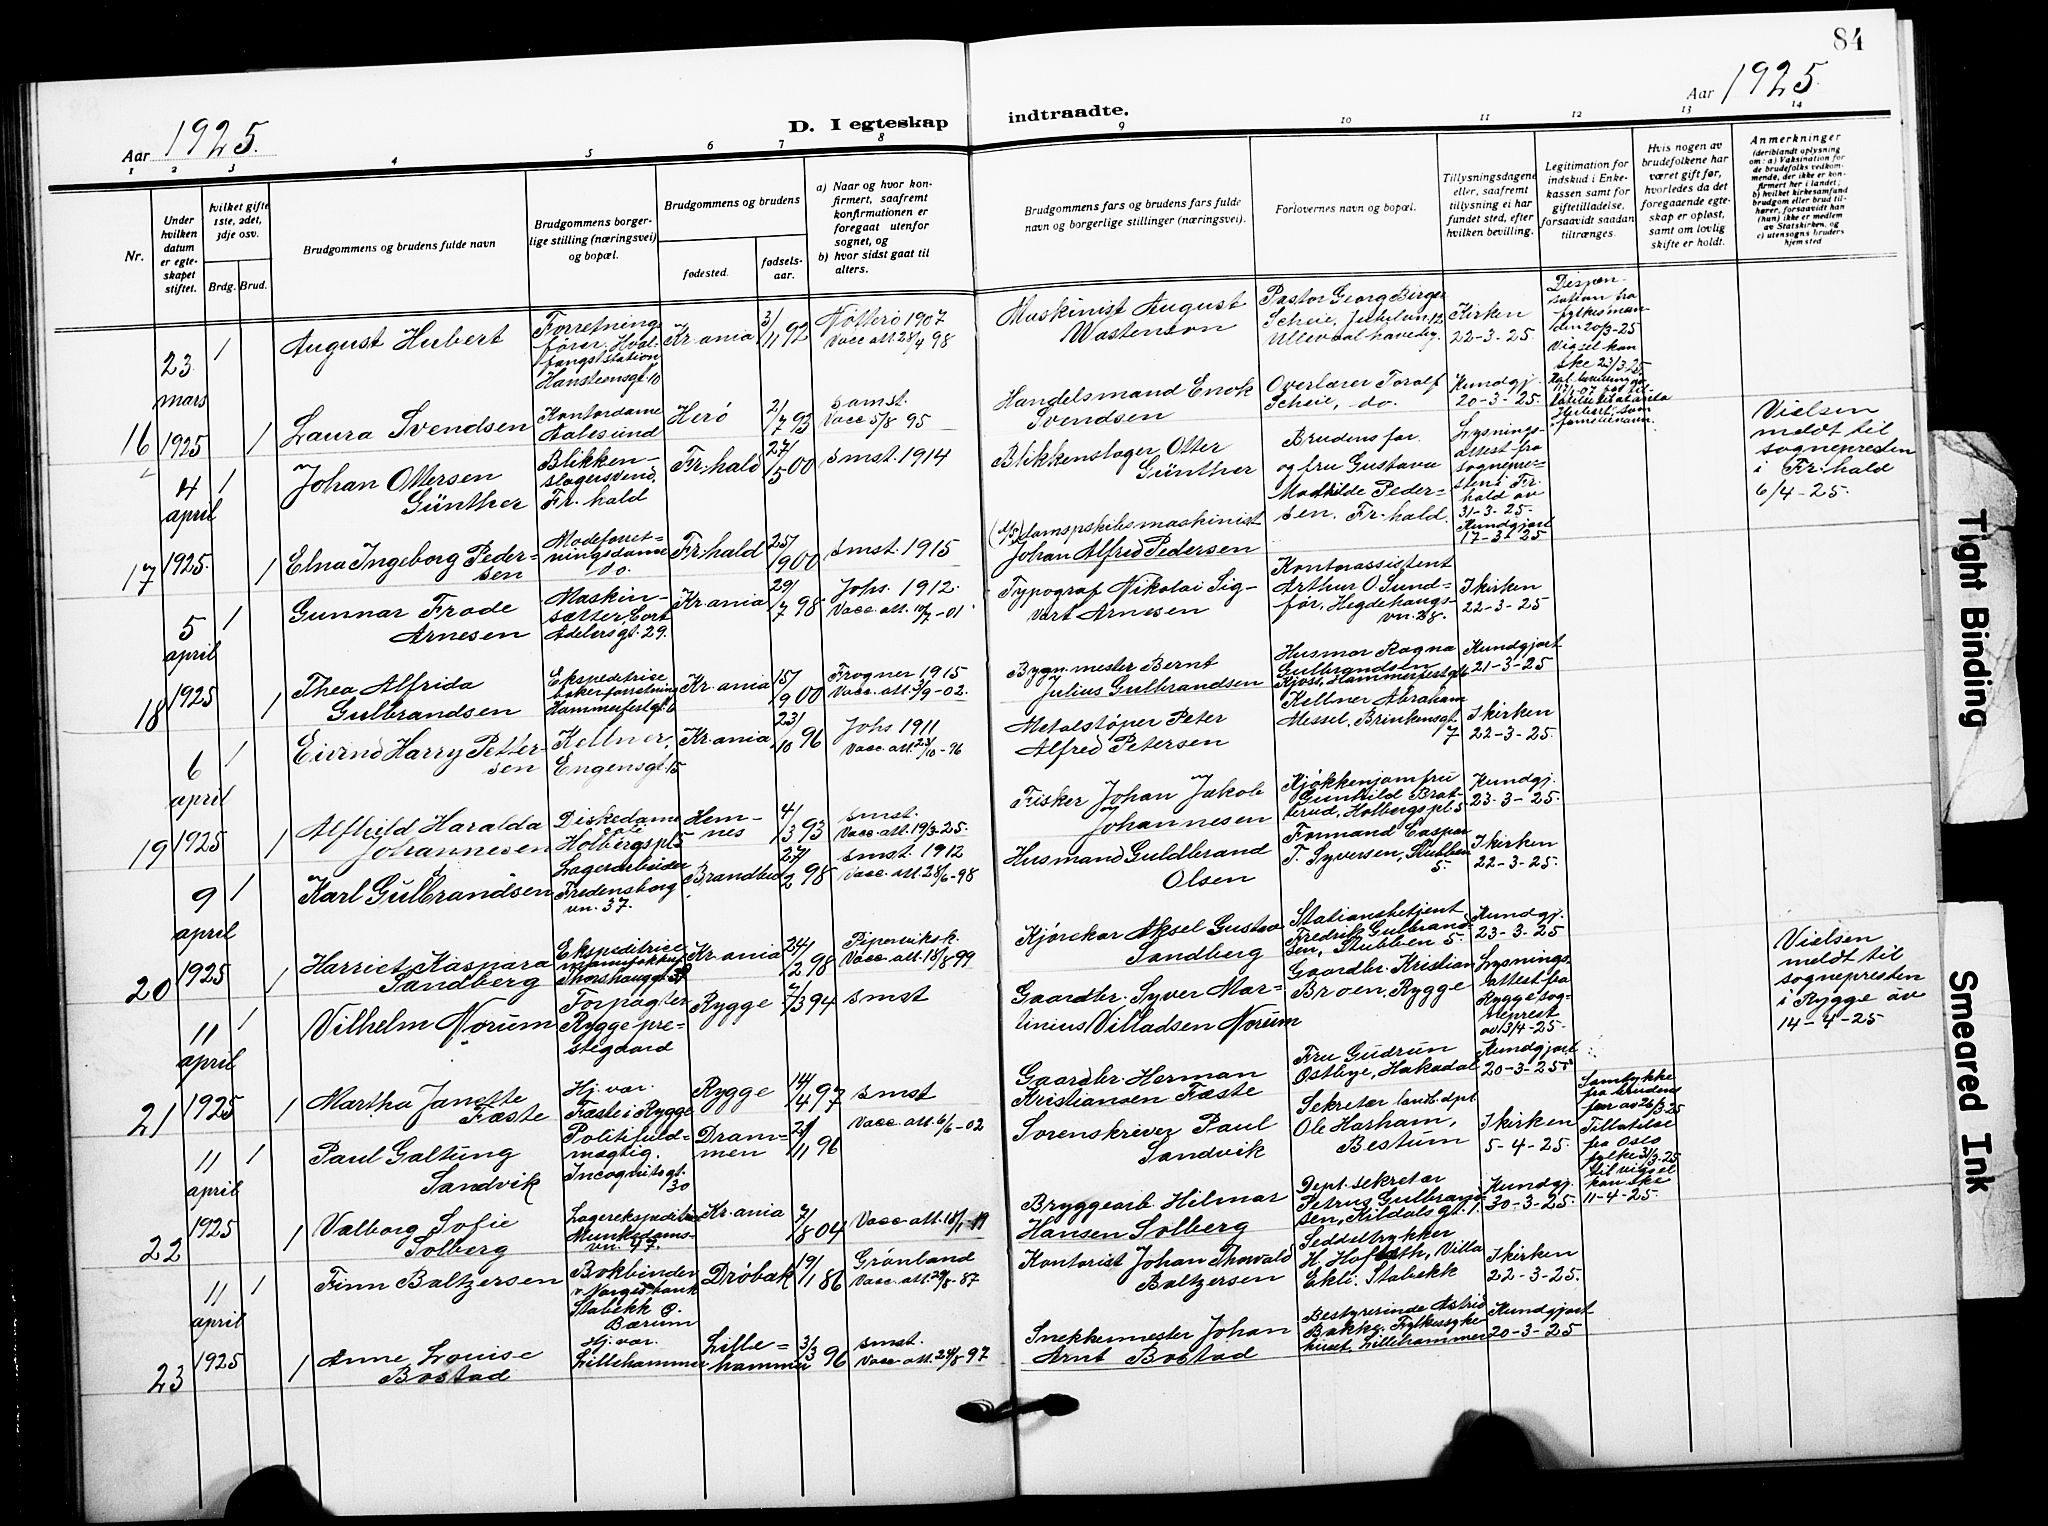 84
Aar 1925.
D. I egteskap
indtraadte.
Aar 1925.
1 2 3 4 5 6 7 8 9 10 11 12 13 14
Nr.
Under hvilken datum er egteskapet stiftet.
hvilket gifte 1ste, 2det, 3dje osv.
Brdg. Brud.
Brudgommens og brudens fulde navn
Brudgommens borgerlige stilling (næringsvei) og bopæl.
Brudgommens og brudens
fødested.
fødselsaar.
a) Naar og hvor konfirmert, saafremt konfirmationen er foregaat utenfor sognet, og
b) hvor sidst gaat til alters.
Brudgommens fars og brudens fars fulde navn og borgerlige stillinger (næringsvei).
Forlovernes navn og bopæl.
Tillysningsdagene eller, saafremt tillysning ei har fundet sted, efter hvilken bevilling.
Legitimation for indskud i Enkekassen samt for giftetilladelse, forsaavidt saadan tiltrænges.
Hvis nogen av brudefolkene har været gift før, hvorledes da det foregaaende egteskap er opløst, samt om lovlig skifte er holdt.
Anmerkninger
(deriblandt oplysning om: a) Vaksination for de brudefolks vedkommende, der ikke er konfirmert her i landet; b) hvilket kirkesamfund brudgom eller brud tilhører, forsaavidt han (hun) ikke er medlem av Statskirken, og c) utensogns bruders hjemsted
16
23 mars 1925
1
August Hubert
Forretningsfører, Hvalfangststation
Hansteensgt. 10
Kr.ania
3/11 92
Nøtterø 1907
Vacc. att. 28/4 98
Maskinist August
Wastenson
Pastor Georg Birger
Scheie, Jubelun. 12
Ullevaal haveby.
I kirken
22-3-25.
Dispensation fra
fylkesman
den 20/3-25
Vigsel kan
ske 23/3.25
1
Laura Svendsen
Kontordame
Aalesund
Herø
2/7 93
samst.
Vacc 5/8 95
Handelsmand Enok
Svendsen
Overlærer Toralf
Scheie, do.
Kundgj.
20-3-25.
17
4 april 1925.
1
Johan Ottersen
Günther
Blikkenslagersvend,
Fr.hald
Fr.hald
27/5 00
smst. 1914
Blikkenslager Otter
Günther
Brudens far
og fru Gustava
Mathilde Pedersen. Fr.hald.
Lysningsattest fra
sogneprestens i Fr.hald av
31-3-25.
Vielsen
meldt til
sognepresten
i Fr.hald
6/4-25.
1
Elna Ingeborg Pedersen
Modeforretningsdame
do.
Fr.hald
25/9 00
smst. 1915
dampskibsmaskinist
Johan Alfred Pedersen
Kundgjort
17-3-25
18
5 april 1925
1
Gunnar Frode
Arnesen
Maskinsætter, Cort
Adelersgt. 29.
Kr.ania
29/7 98
Johs. 1912.
Vacc. att. 10/7-01
Typograf Nikolai Sigvart Arnesen
Kontorassistent
Arthur O. Sundfør, Hegdehaugsvn. 28.
I kirken
22-3-25
1
Thea Alfrida
Gulbrandsen
Ekspeditrice
bakerforretning
Hammerfestgt. 6
Kr.ania
15/9 00
Frogner 1915
Vacc. att. 3/9-02.
Bygn.mester Bernt
Julius Gulbrandsen
Husmor Ragna
Gulbrandsen
Kjøss, Hammerfestgt 6
Kundgjort
21-3-25
19
6 april 1925
1
Eivind Harry Pettersen
Kellner,
Engensgt. 15
Kr.ania
23/10 96
Johs 1911
Vacc. att. 23/10-96
Metalstøper Peter
Alfred Petersen
Kellner Abraham
Messel, Brinkensgt.
7
I kirken
22-3-25.
1
Alfhild Haralda
Johannesen
Diskedame
Holbergspl 5
Hemnes
4/3 93
smst.
Vacc. att. 19/3-25.
Fisker Johan Jakob
Johannesen
Kjøkkenjomfru
Gunhild Bratterud, Holbergspl. 5
Kundgj.
23-3-25.
20
9 april 1925
1
Karl Gulbrandsen
Lagerarbeider
Fredensborgvn. 37.
Brandbu
27/2 98
smst. 1912
Vacc. att. 28/6-98
Husmand Guldbrand
Olsen
Formand Casper
T. Syversen, Stubben
5.
I kirken
22-3-25.
1
Harriet Kaspara
Sandberg
Ekspeditrice
Kr.ania
24/2 98
Pipervik sk.
Vacc. att. 18/8 99
Kjørekar Aksel Gustav
Sandberg
Stationsbetjent
Fredrik Gulbrandsen, Stubben 5.
Kundgj.
23-3-25
21
11 april 1925
1
Vilhelm Norum
Forpagter
Rygge prestegaard
Rygge
7/3 94
smst
Gaardbr. Syver Martinius Villadsen Norum
Gaardbr. Kristian
Broen, Rygge
Lysningsattest fra
Rygge sogneprest
av 13/4-25.
Vielsen
meldt til
sognepresten
i Rygge av
14-4-25
1
Martha Janette
Fæste
Hj. var.
Fæste i Rygge
Rygge
14/4 97
smst
Gaardbr. Herman
Kristiansen Fæste
Fru Gudrun
Østbye, Hakadal
Kundgjort
20-3-25
22
11 april 1925
1
Paul Galtung
Sandvik
Politifuldmægtig.
Incognitogt.
30
Drammen
21/11 96
Vacc. att. 6/6-02
Sorenskriver Paul
Sandvik
Sekretær landb.dpt
Ole Harham,
Bestum
I kirken
5-4-25
Samtykke
fra brudens
far av 26/3.25
Tillatelse
fra Oslo
fylke 31/3.25
til vigsel
kan ske
11-4-25.
1
Valborg Sofie
Solberg
Lagerekspeditrice
Munkedamsvn. 47.
Kr.ania
7/8 04
Vacc. att. 18/1-19
Bryggearb. Hilmar
Hansen Solberg
Dept.sekretær
Petrus Gulbrandsen, Kildalsgt. 1.
Kundgj.
30-3-25.
23
11 april 1925
1
Finn Baltzersen
Bokbinder
v. Norges bank
Stabekk p.
Bærum
Drøbak
19/1 86
Grønland
Vacc. att. 29/8-87
Kontorist Johan Thorvald
Baltzersen
Seddeltrykker
H. Hofseth, Villa
Ekli. Stabekk
I kirken
22-3-25.
1
Anne Louise
Bostad
Hj. var.
Lillehammer
Lillehammer
3/3 96
smst.
Vacc. att. 24/8 97
Snekkermester Johan
Arnt Bostad
Bestyrerinde Astrid
Bakke, Fylkessykehuset, Lillehammer
Kundgjort
20-3-25
Tight Binding
Smeared Ink